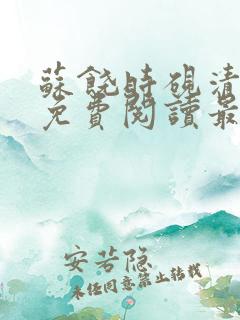 蘇饒時硯清
免費閱讀最
安若隐
未经同意禁止转载